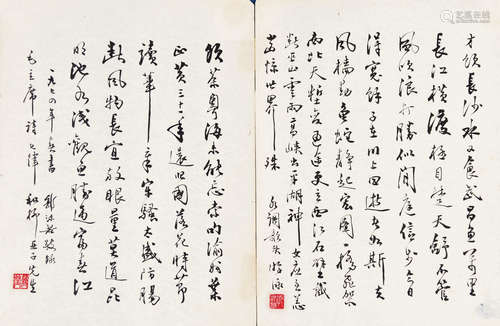 才饮长沙水又食武昌鱼万里
长江横渡极目楚天舒不管
风吹浪打胜似闲庭信步今日
得宽馀子在川上曰逝者如斯夫
风樯动龟蛇静起宏图一桥飞架
南北天堑变通途更立西江石壁截
断巫山云雨高峡出平湖神女应无恙
当惊世界殊 水调歌头 游泳
饮茶粤海未能忘索句渝州叶
正黄三十一年还旧国落花时节
读华章牢骚太盛防肠
断风物长宜放眼量莫道昆
明池水浅观鱼胜过富春江
一九七四年春书
毛主席诗七律 和柳亚子先生